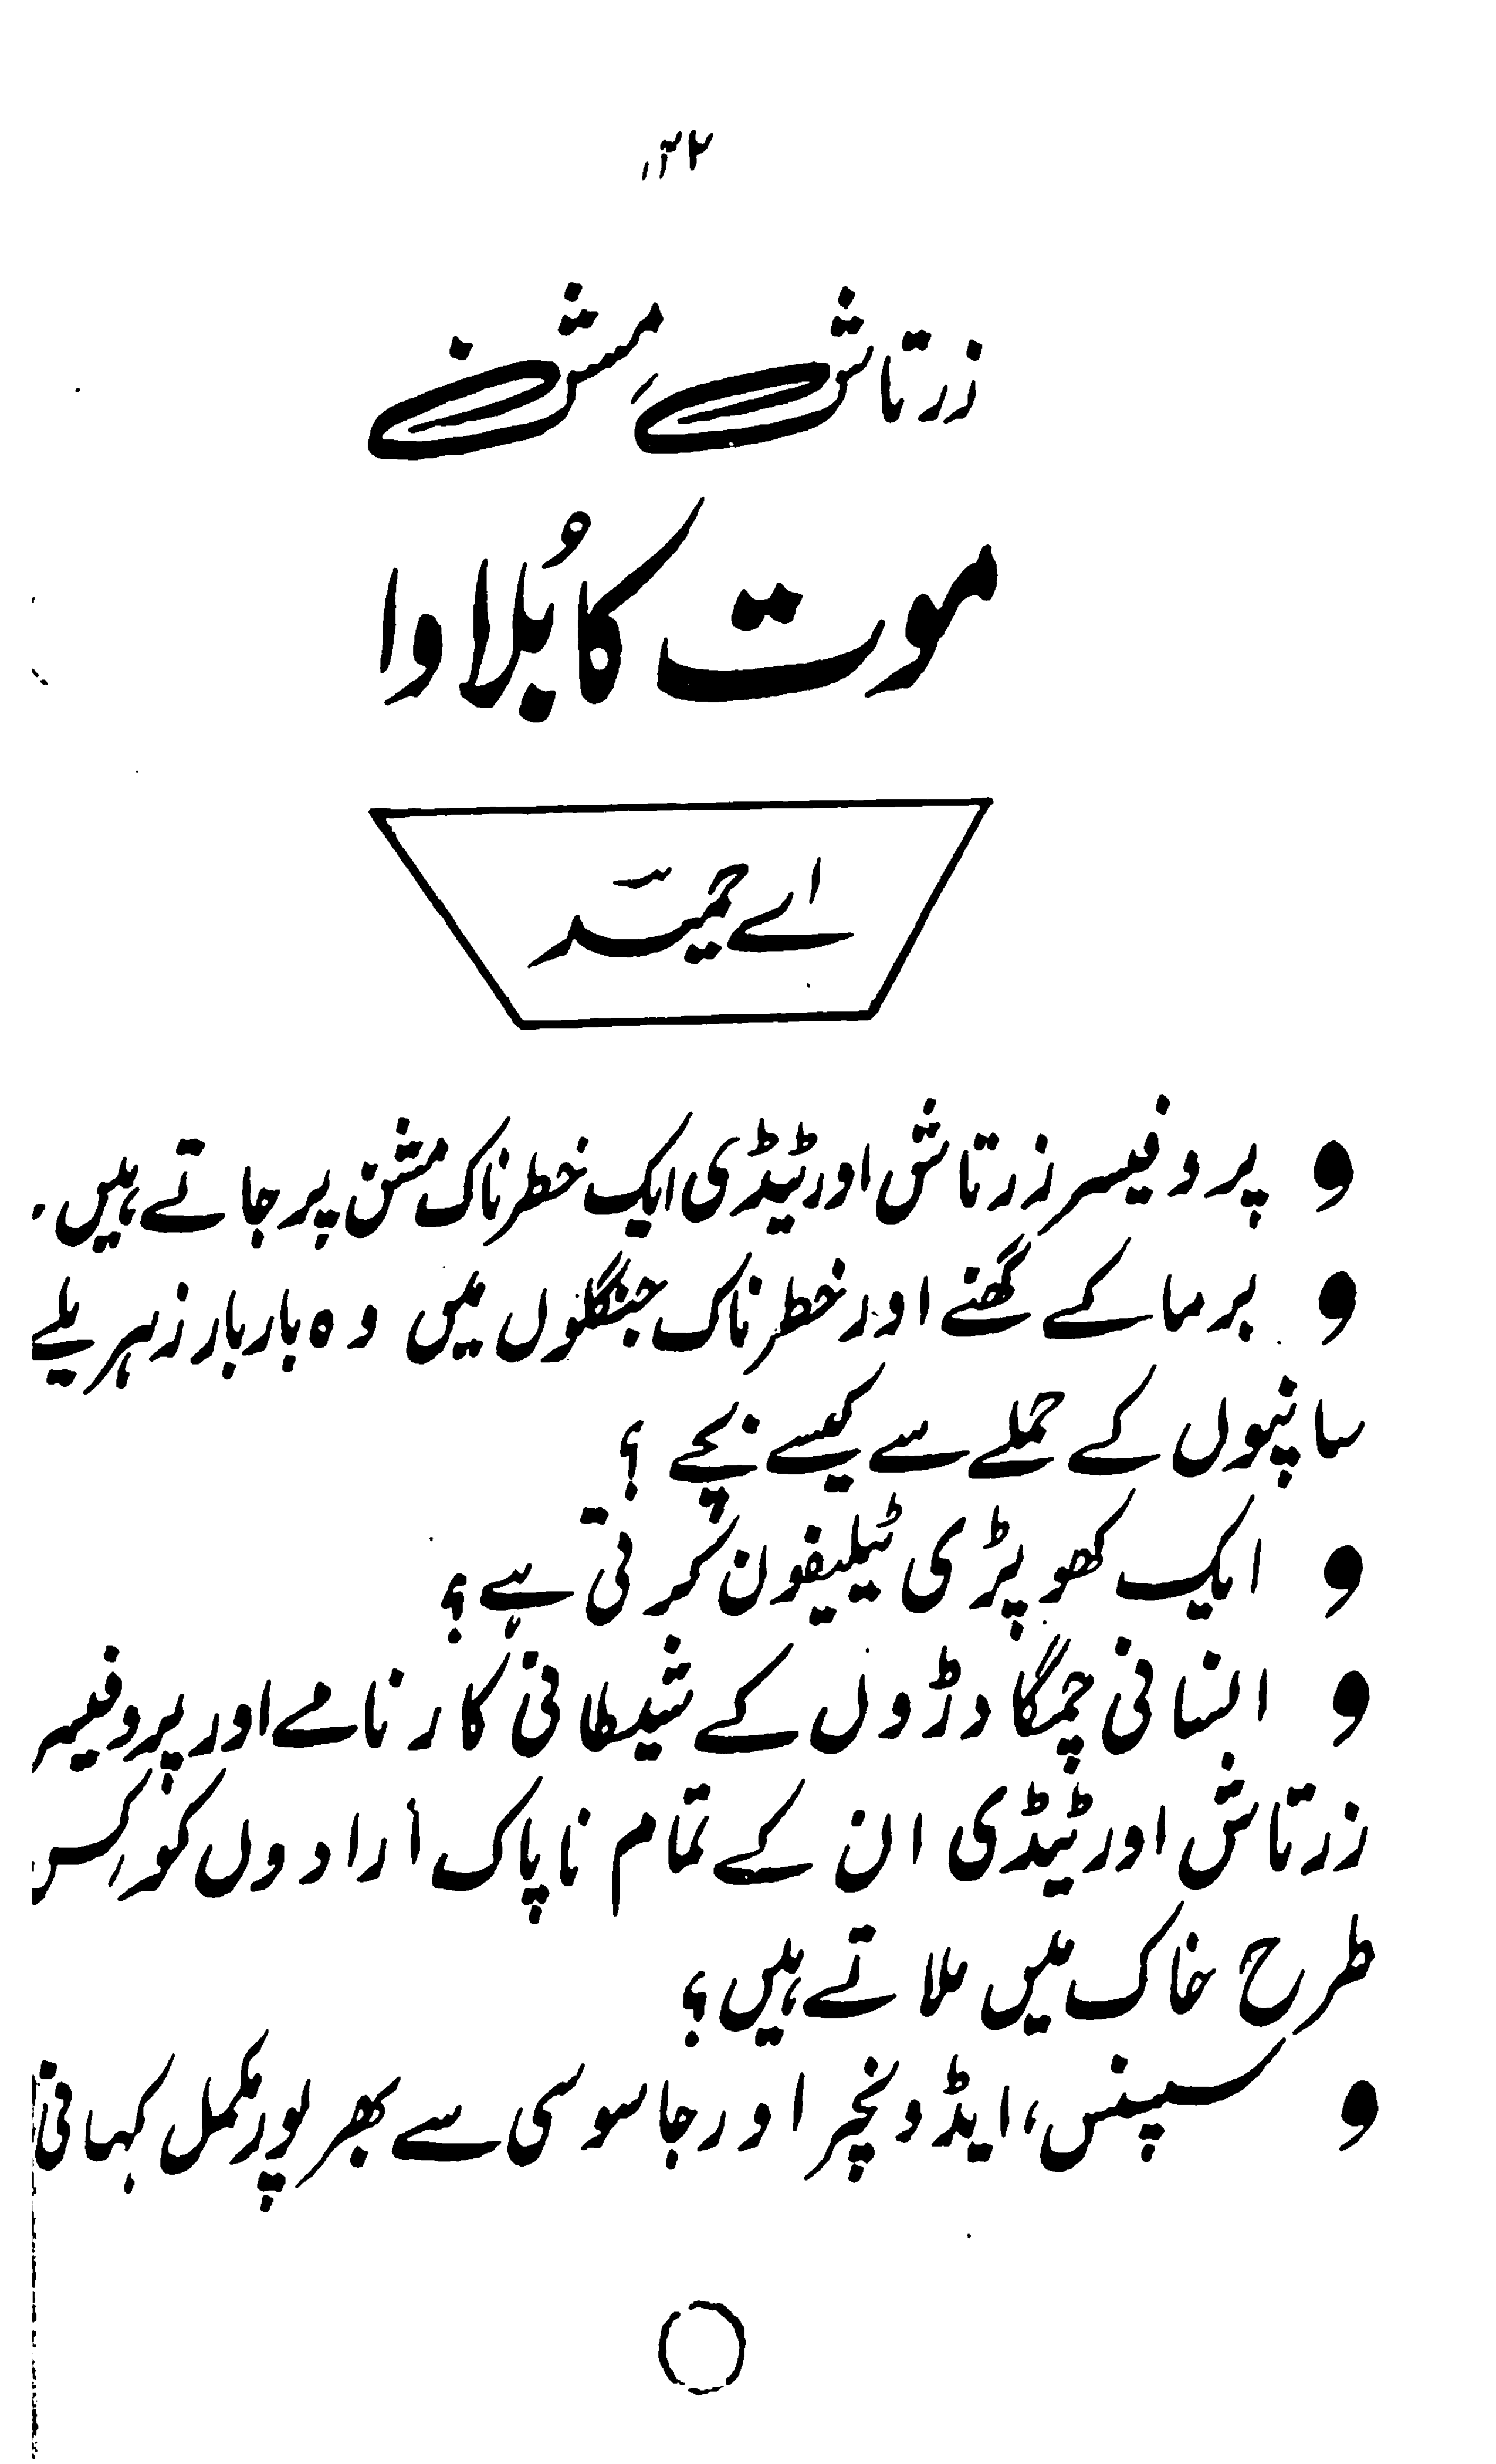 زرتاش مشن
موت کا بُلاوا
اے حمید
پروفیسر زرتاش اور ٹیڈی ایک خطرناک مشن پر جاتے ہیں۔
برما کے گھنے اور خطرناک جنگلوں میں وہ بار بار زہریلے
سانپوں کے حملے سے کیسے بچے ؟
ایک کھوپڑی ٹیلیفون کرتی ہے ؟
انسانی چمگادڑوں کے شیطانی کارنامے اور پروفیسر
زرتاش اور ٹیڈی ان کے تمام ناپاک ارادوں کو کس
طرح خاک میں ملاتے ہیں ؟
سسپنس، ایڈونچر اور جاسوسی سے بھرپور مکمل کہانی